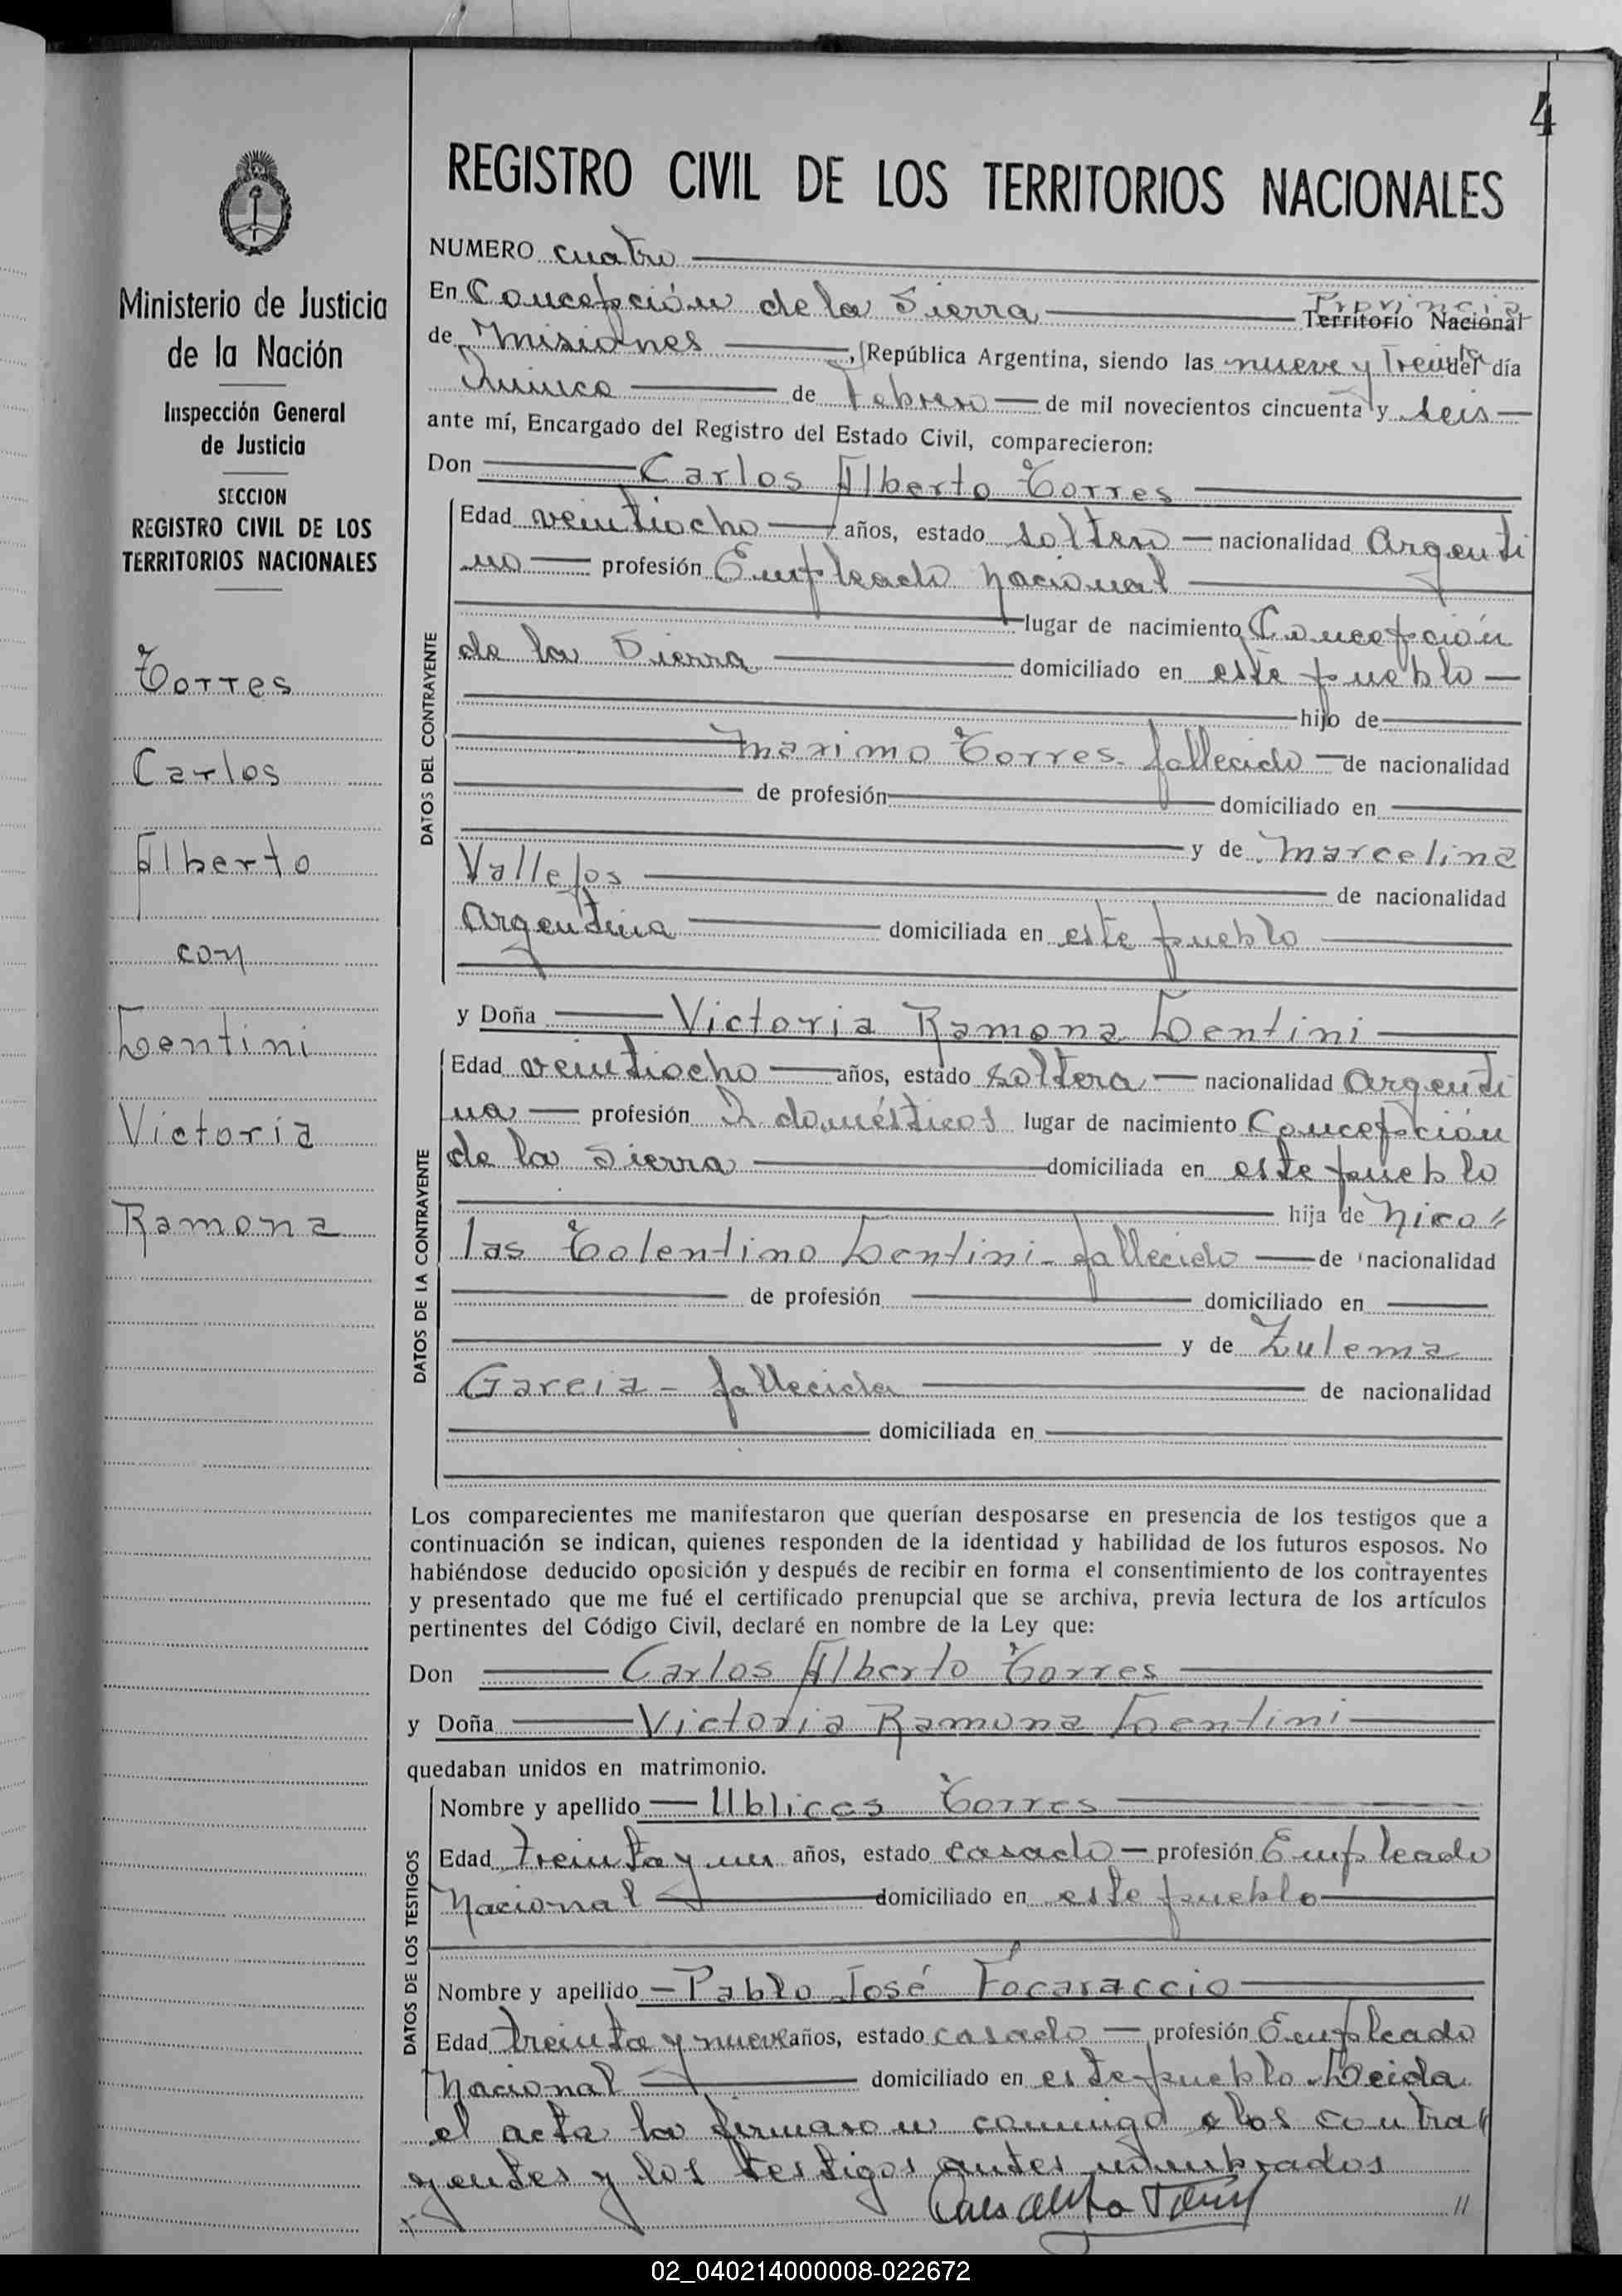 4
REGISTRO CIVIL DE LOS TERRITORIOS NACIONALES
Ministerio de Justicia
de la Nación
Inspección General
de Justicia
SECCION
REGISTRO CIVIL DE LOS
TERRITORIOS NACIONALES
Torres
Carlos
Alberto
con
Lentini
Victoria
Ramona
NUMERO cuatro
Provincia
En Concepción de la Sierra Territorio Nacional
de Misiones, República Argentina, siendo las nueve y treinta del día
Quince de Febrero de mil novecientos cincuenta y seis
ante mí, Encargado del Registro del Estado Civil, comparecieron:
Don Carlos Alberto Torres
DATOS DEL CONTRAYENTE
Edad veintiocho años, estado soltero nacionalidad Argenti
no profesión Empleado Nacional
lugar de nacimiento Concepción
de la Sierra domiciliado en este pueblo
hijo de
Maximo Torres - fallecido de nacionalidad
de profesión domiciliado en
y de Marcelina
Vallejos de nacionalidad
Argentina domiciliada en este pueblo
y Doña Victoria Ramona Lentini
DATOS DE LA CONTRAYENTE
Edad veintiocho años, estado soltera nacionalidad Argenti
na profesión Q domésticos lugar de nacimiento Concepción
de la Sierra domiciliada en este pueblo
hija de Nico"
las Tolentino Lentini - fallecido de nacionalidad
de profesión domiciliado en
y de Zulema
Garcia - fallecida de nacionalidad
domiciliada en
Los comparecientes me manifestaron que querían desposarse en presencia de los testigos que a
continuación se indican, quienes responden de la identidad y habilidad de los futuros esposos. No
habiéndose deducido oposición y después de recibir en forma el consentimiento de los contrayentes
y presentado que me fué el certificado prenupcial que se archiva, previa lectura de los artículos
pertinentes del Código Civil, declaré en nombre de la Ley que:
Don Carlos Alberto Torres
y Doña Victoria Ramona Lentini
quedaban unidos en matrimonio.
DATOS DE LOS TESTIGOS
Nombre y apellido Ublices Torres
Edad treinta y un años, estado casado profesión Empleado
Nacional domiciliado en este pueblo
Nombre y apellido Pablo José Focaraccio
Edad treinta y nueve años, estado casado profesión Empleado
Nacional domiciliado en este pueblo. Leida
el acta la firmaron conmigo los contra"
yentes y los testigos antes nombrados
Carlos Alberto Torres "
02_040214000008-022672